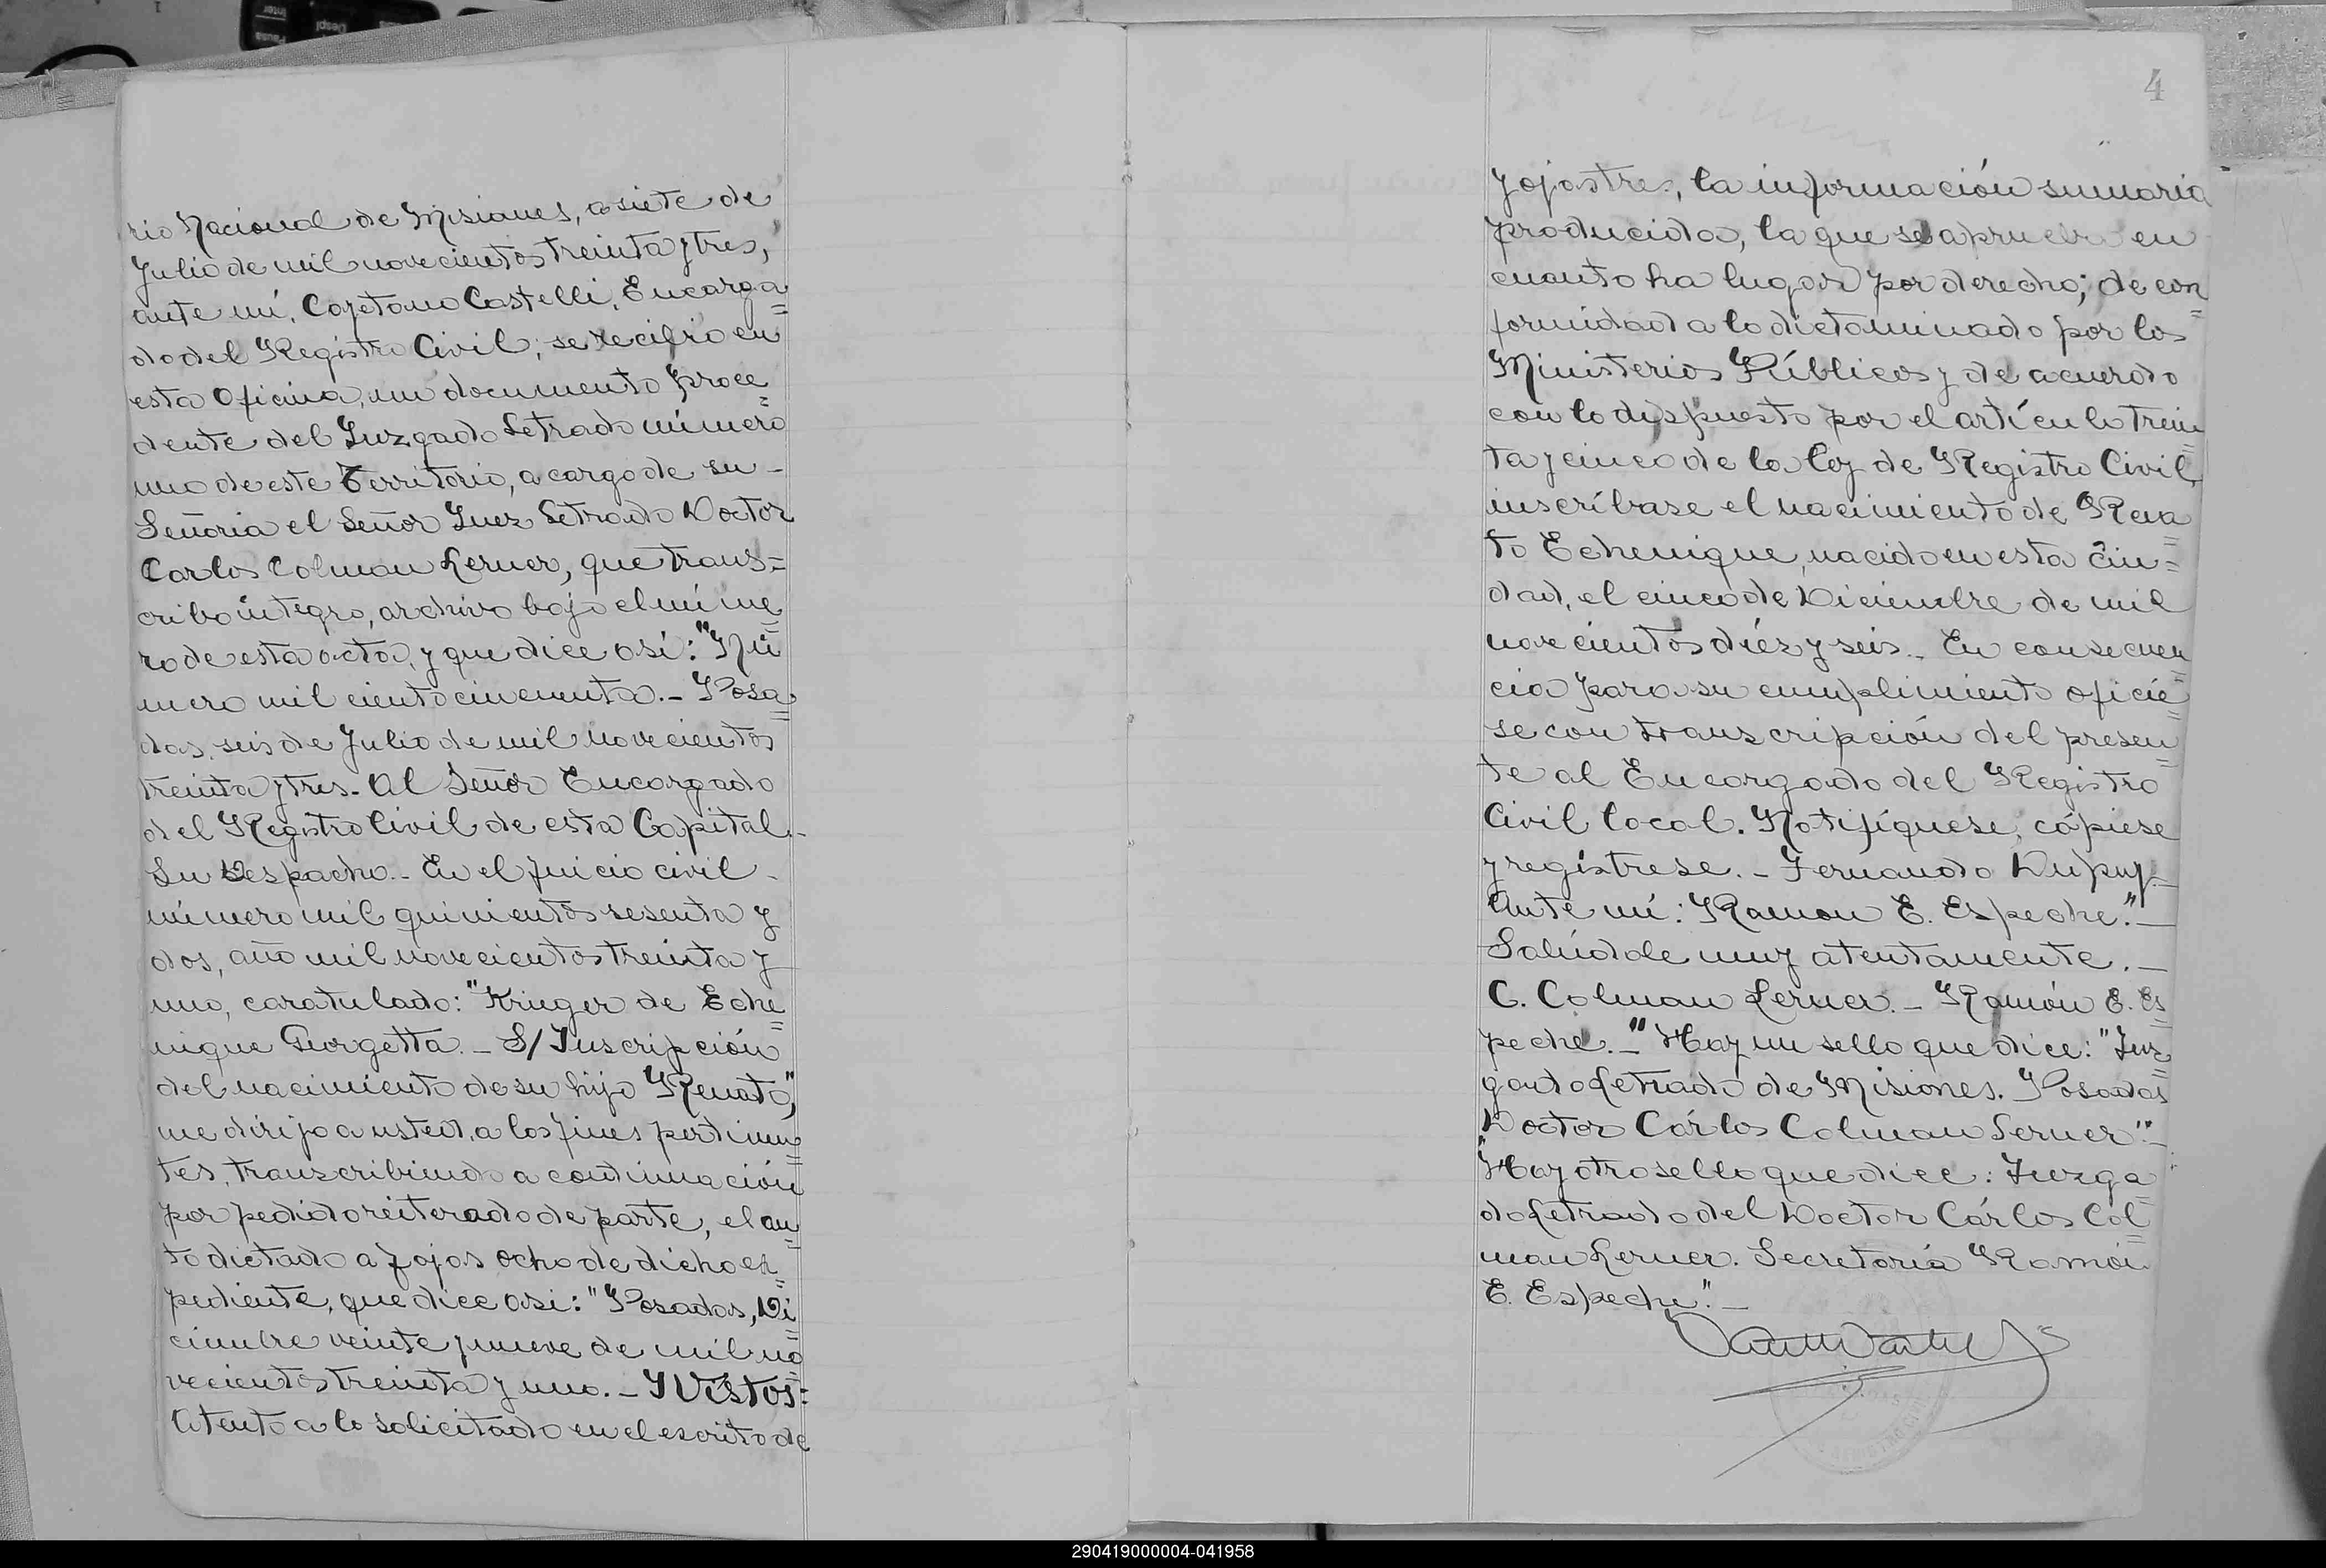 rio Nacional de Misiones, a siete de
Julio de mil novecientos treinta y tres,
ante mí, Cayetano Castelli, Encarga=
do del Registro Civil; se recibió en
esta Oficina, un documento proce=
dente del Juzgado Letrado número
uno de este Territorio, a cargo de su-
Señoria el Señor Juez Letrado Doctor
Carlos Colman Lerner, que trans=
cribo íntegro, archivo bajo el núme=
ro de esta acta, y que dice asi: "Nú=
mero mil ciento cincuenta.- Posa=
das, seis de Julio de mil novecientos
treinta y tres.- Al Señor Encargado
del Registro Civil de esta Capital.-
Su Despacho.- En el juicio civil-
número mil quinientos sesenta y
dos, año mil novecientos treinta y
uno, caratulado: "Krieger de Eche=
nique Georgetta.- S/Inscripción
del nacimiento de su hijo Renato",
me dirijo a usted, a los fines pertinen=
tes, transcribiendo a continuación
por pedido reiterado de parte, el au=
to dictado a fojas ocho de dicho ex=
pediente, que dice asi: "Posadas, Di=
ciembre veinte y nueve de mil no=
vecientos treinta y uno.- Y Vistos:
Atento a lo solicitado en el escrito de
4
fojas tres, la información sumaria
producida, la que se aprueba en
cuanto ha lugar por derecho; de con=
formidad a lo dictaminado por los
Ministerios Públicos y de acuerdo
con lo dispuesto por el artículo trein=
ta y cinco de la ley de Registro Civil,
inscríbase el nacimiento de Rena=
to Echenique, nacido en esta ciu=
dad, el cinco de Diciembre de mil
novecientos diéz y seis.- En consecuen=
cia para su cumplimiento oficie=
se con transcripción del presen=
te al Encargado del Registro
Civil local. Notifíquese, cópiese
y regístrese.- Fernando Dupuy.-
Ante mí: Ramon E. Espeche".-
Salúdale muy atentamente.-
C. Colman Lerner.- Ramón E. Es=
peche.-" Hay un sello que dice: "Juz=
gado Letrado de Misiones. Posadas
Doctor Cárlos Colman Lerner".-
"Hay otro sello que dice: Juzga=
do Letrado del Doctor Cárlos Col=
man Lerner. Secretaría Ramón
E. Espeche".-
290419000004-041958